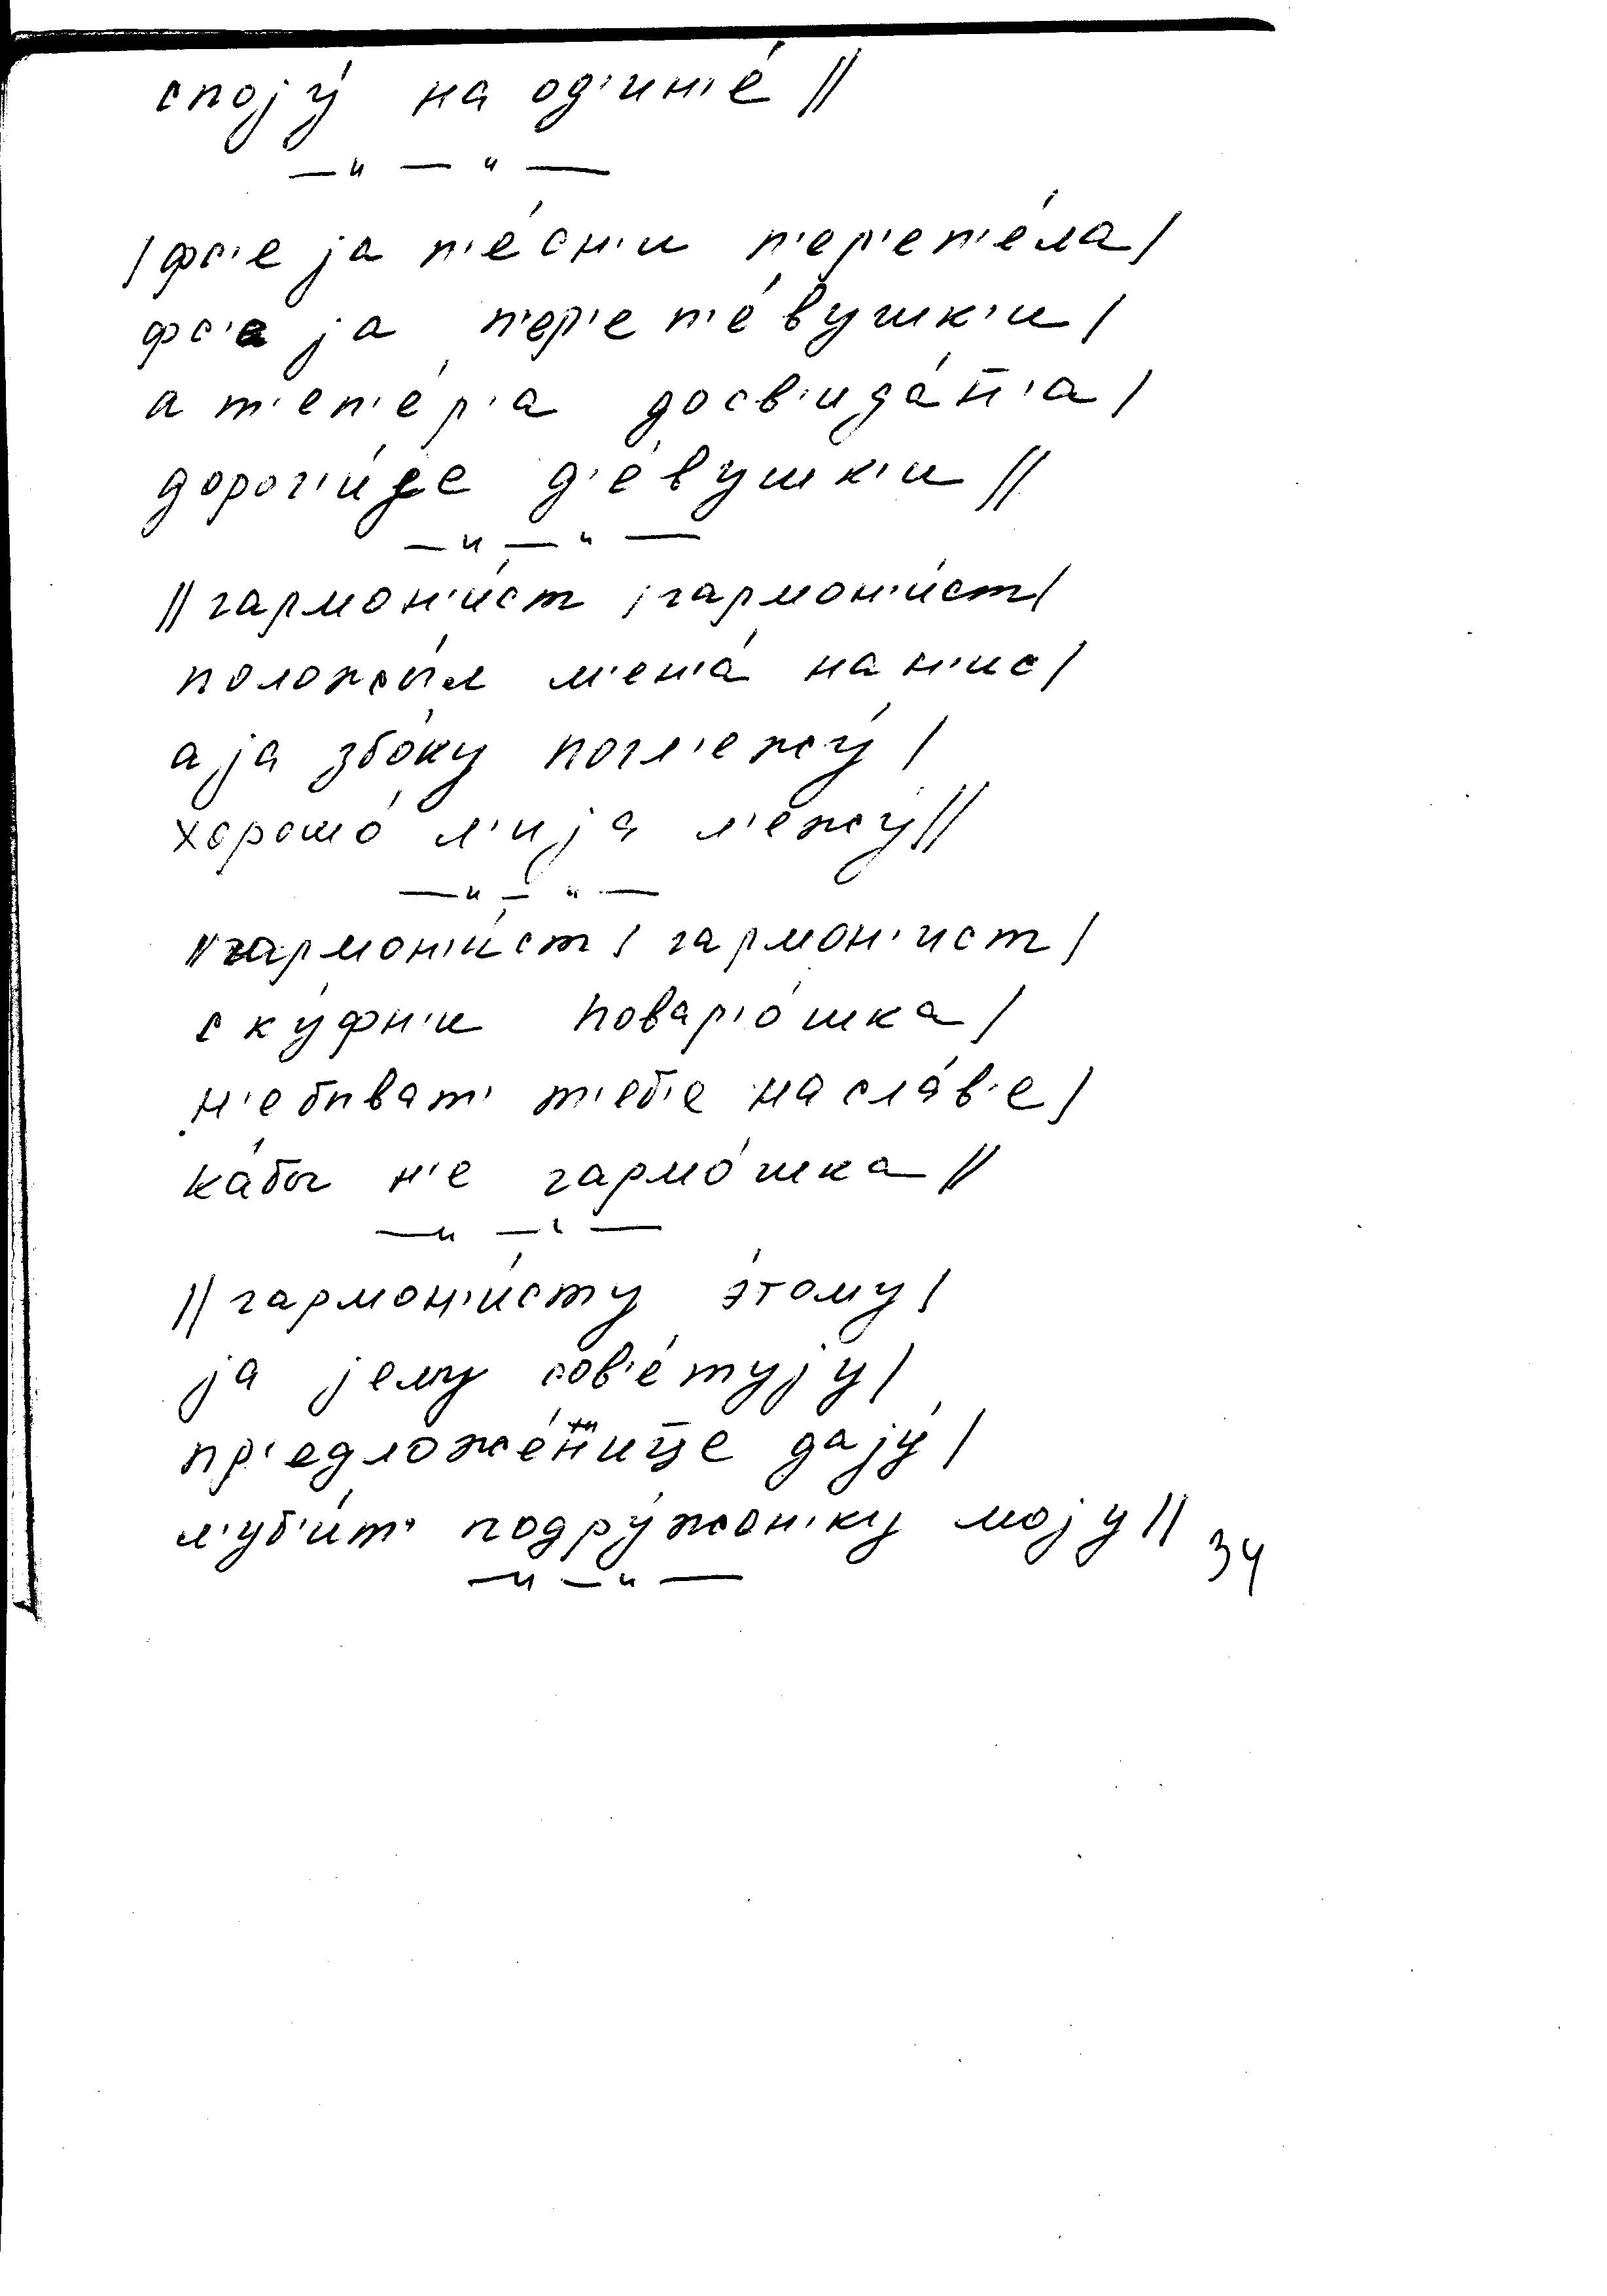 споjу́ на од'ин'е́ //
— " — " —
/ фс'е jа п'е́сн'и п'ер'еп'е́ла /
фс'е jа п'ер'еп'е́вушк'и /
а т'еп'е́р'а досв'ида́н̄'а /
дорог'и́jе д'е́вушк'и //
— " — " —
// гармон'и́ст / гармон'и́ст /
положы́л м'ен'а́ на н'ис /
а jа збо́ку погл'ежу́ /
хорошо́ л'и jа л'ежу́ //
— " — " —
// гармон'и́ст / гармон'ист /
с ку́фн'и повар'о́шка /
н'е быват' т'еб'е на сла́в'е /
ка́бы н'е гармо́шка //
— " — " —
// гармон'и́сту э́тому /
jа jему сов'е́туjу /
пр'едложе́н'иjе даjу́ /
л'уб'и́т' подру́жон'ку моjу //
— " — " —
34